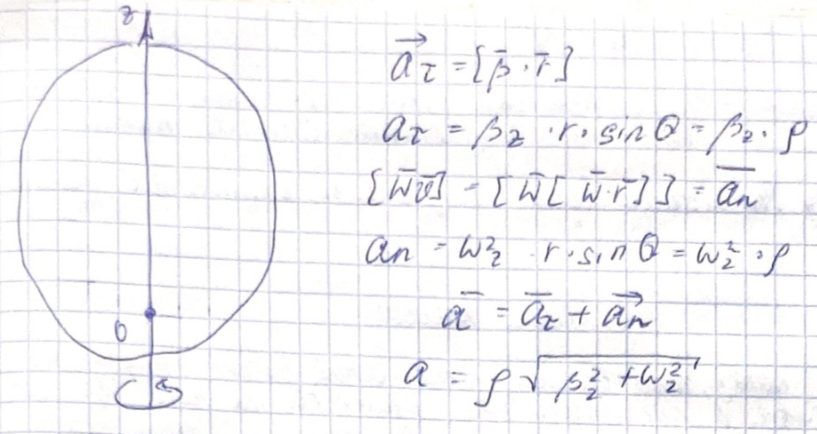 z
O
\vec{a_τ} = [\bar{β} · \bar{r}]
a_τ = β_z · r · sin θ = β_z · ρ
[\bar{ω}\bar{v}] = [\bar{ω}[\bar{ω}·\bar{r}]] = \bar{a_n}
a_n = ω_z^2 r · sin θ = ω_z^2 · ρ
\bar{a} = \bar{a_τ} + \vec{a_n}
a = ρ √(β_z^2 + ω_z^2)